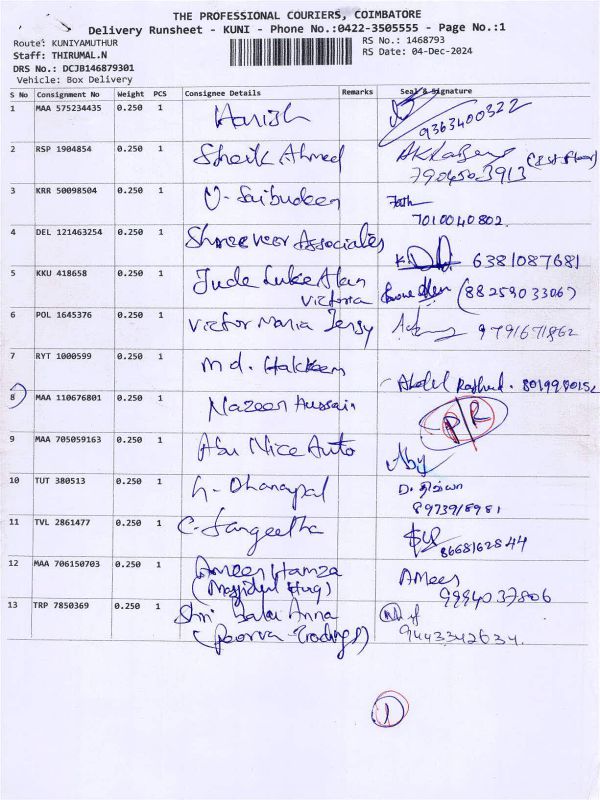 THE PROFESSIONAL COURIERS, COIMBATORE
Delivery Runsheet - KUNI - Phone No.:0422-3505555 - Page No.:1
Route: KUNIYAMUTHUR RS No.: 1468793
Staff: THIRUMAL.N RS Date: 04-Dec-2024
DRS No.: DCJB146879301
Vehicle: Box Delivery
S No Consignment No Weight PCS Consignee Details Remarks Seal & Signature
1 MAA 575234435 0.250 1 Harish 9363400322
2 RSP 1904854 0.250 1 Sheik Ahmed (1st floor)
7904503913
3 KRR 50098504 0.250 1 U. Saibudeen
7010040802.
4 DEL 121463254 0.250 1 Shree veer Associates 6381087681
5 KKU 418658 0.250 1 Jude Luke Alan
Victoria (8825903306)
6 POL 1645376 0.250 1 Victor Maria Jersy 9791671862
7 RYT 1000599 0.250 1 Md. Hakkeem
Abdul Rashid. 8019980152
8 MAA 110676801 0.250 1 Nazeer Hussain P/R
9 MAA 705059163 0.250 1 Abu Nice Auto Aby
10 TUT 380513 0.250 1 G. Dhanapal D. திவ்யா
8973918981
11 TVL 2861477 0.250 1 C. Sangeetha
8668162844
12 MAA 706150703 0.250 1 Ameer Hamza AMees
(Masjidul Huq) 9994037806
13 TRP 7850369 0.250 1 Shri Balaji Anna
(Poorva Tradings) 9443342634.
1